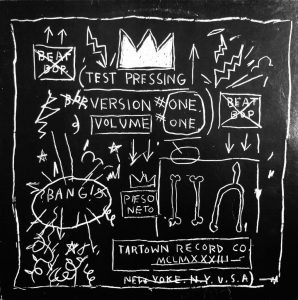 BEAT
BOP
TEST PRESSING
VERSION # ONE
VOLUME # ONE
BEAT
BOP
BANG!
PIESO
NETO
TARTOWN RECORD CO.
MCLMXXXIII
N.Y. U.S.A